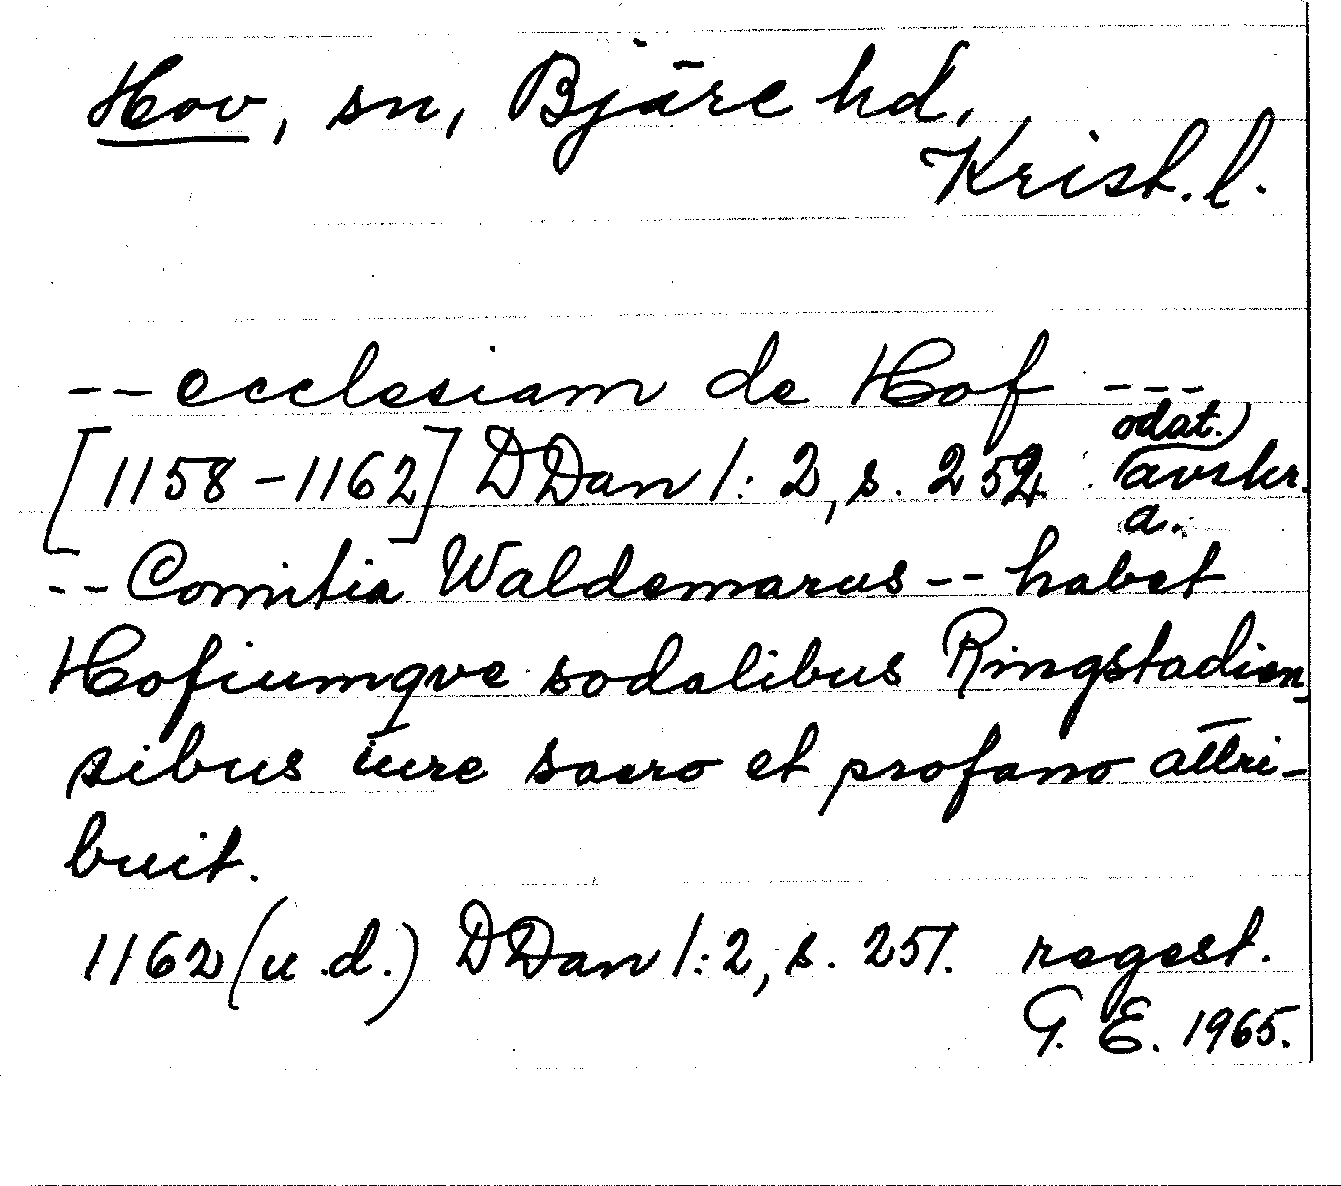 Hov, sn, Bjäre hd,
Krist. l.
-- ecclesiam de Hof ---
[1158-1162] DDan 1:2, s. 252 odat.) (avskr. a.
-- Comitia Waldemarus -- habet
Hofiumqve sodalibus Ringstadien-
sibus iure sacro et profano attri-
buit.
1162 (u.d.) DDan 1:2, s. 251. regest.
G. E. 1965.